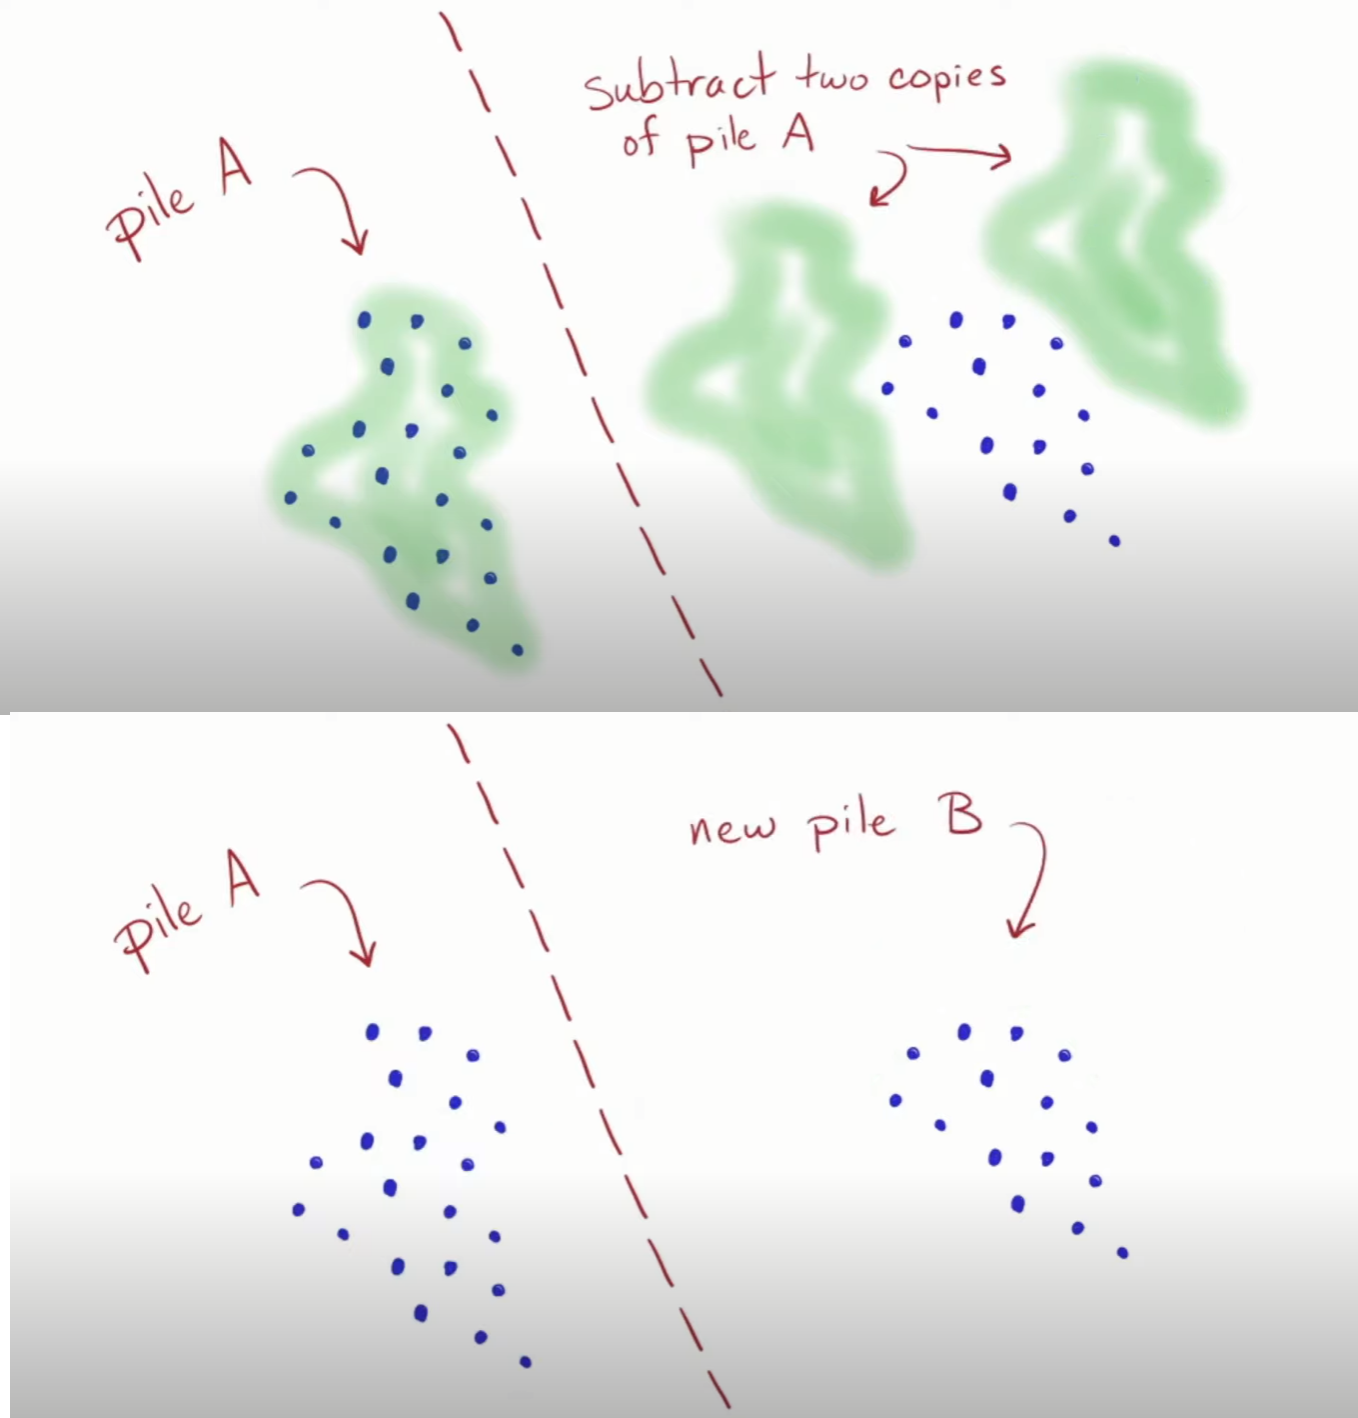 pile A
Subtract two copies
of pile A
pile A
new pile B